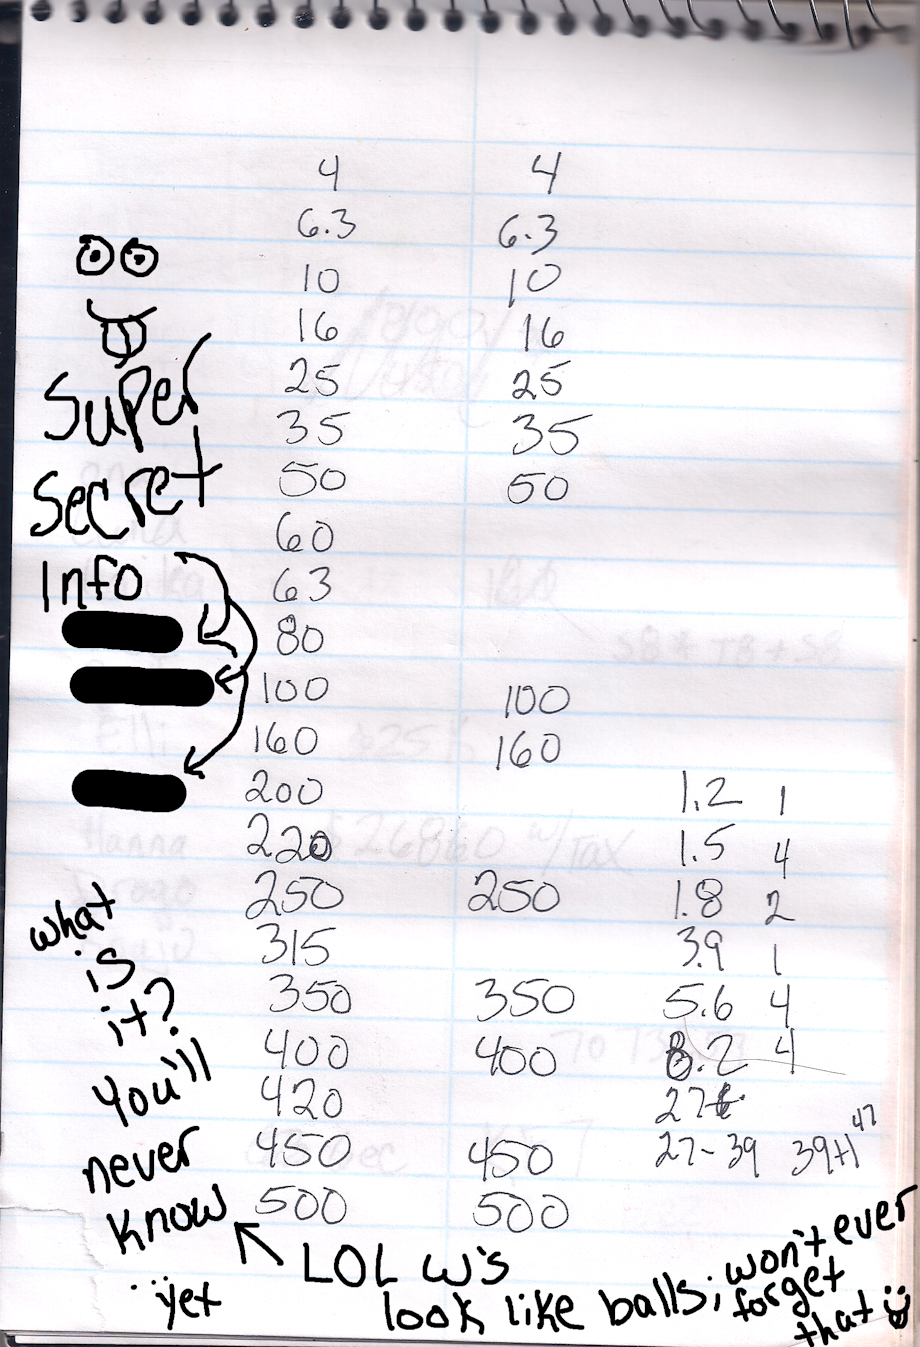 4 4
6.3 6.3
10 10
16 16
Super 25 25
35 35
Secret 50 50
60
Info 63
80
100 100
160 160
200 1.2 1
220 1.5 4
what 250 250 1.8 2
is 315 3.9 1
it? 350 350 5.6 4
You'll 400 400 8.2 4
420 27
never 450 450 27-39 39+1 47
know 500 500
...yet LOL w's
look like balls; won't ever
forget
that